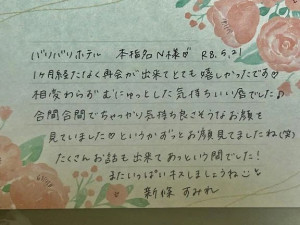 バリバリホテル 本指名N様♡ R8.5.21
1ヶ月経たなく再会が出来てとても嬉しかったです♡
相変わらずむにゅっとした気持ちいい唇でした♪
合間合間でちゃっかり気持ち良さそうなお顔を
見ていました♡というかずっとお顔見てましたね(笑)
たくさんお話も出来てあっという間でした!
またいっぱいキスしましょうね
新條 すみれ